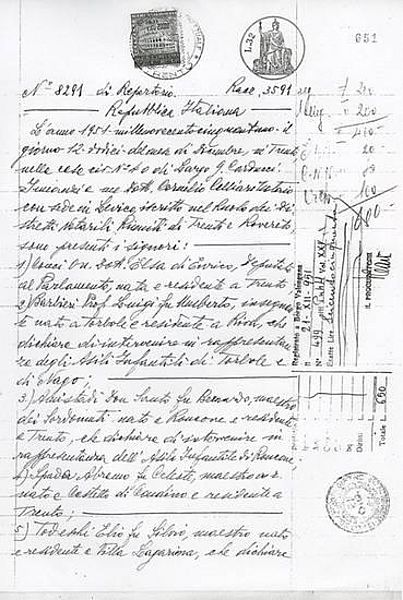 L. 32
651
N° 8291 di Repertorio Racc. 3591
Repubblica Italiana
L'anno 1951 millenovecentocinquantuno - il
giorno 12 dodici del mese di Dicembre, in Trento
nella casa civ. N° 40 di Largo G. Carducci.
Innanzi a me Dott. Cornelio Notaio
con sede in Levico, iscritto nel Ruolo dei Di-
stretti Notarili Riuniti di Trento e Rovereto
sono presenti i signori:
1) Conci On. Dott. Elsa di Enrico, Deputato
al Parlamento, nata e residente a Trento
2) Barbieri Prof. Luigi fu Umberto, insegnan
te nato a Torbole e residente a Riva, che
dichiara di intervenire in rappresentan
za degli Asili Infantili di Torbole e
di Nago;
3) Amistadi Don Santo fu Bernardo, maestro
dei Sordomuti nato a Roncone e residente
a Trento, che dichiara di intervenire in
rappresentanza dell'Asilo Infantile di Roncone;
4) Spada Abramo fu Celeste, maestro
nato a Castello di Condino e residente a
Trento;
5) Todeschi Elio fu Silvio, maestro nato
e residente a Villa Lagarina, che dichiara
200
200
400
100
Registrato a Borgo Valsugana
il 21-XII-951
N° 499 Vol. XXV
Esatte Lire
IL PROCURATORE
Totale L. 650